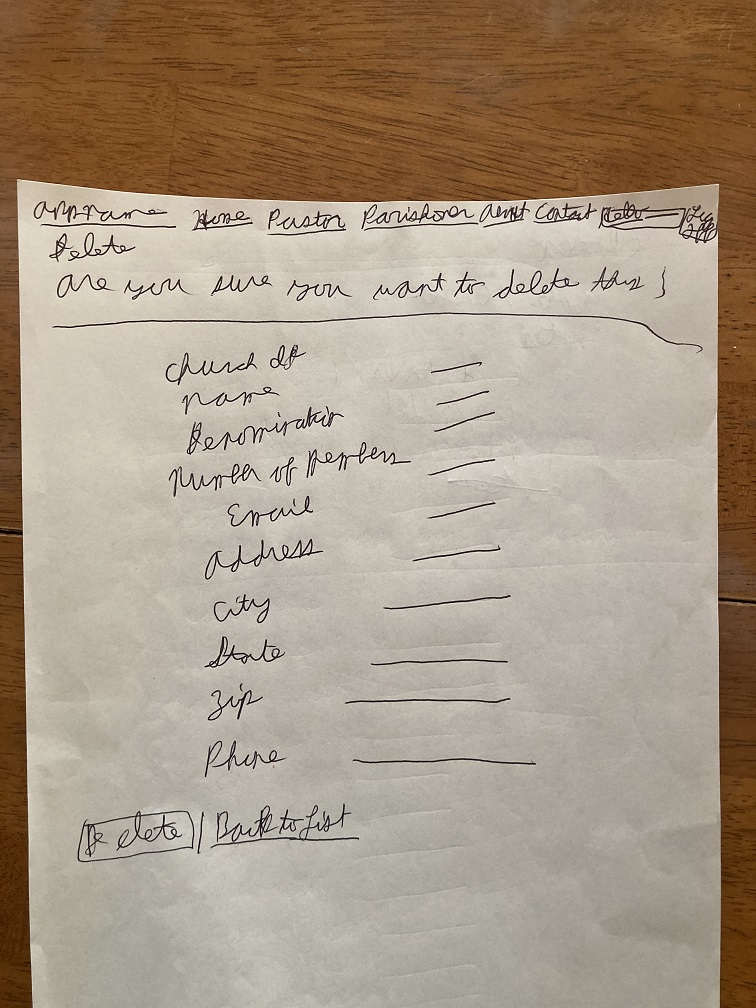 Appname Home Pastor Parishoner About Contact Hello Log off
Delete
Are you sure you want to delete this?
Church ID
Name
Denomination
Number of Members
Email
Address
City
State
Zip
Phone
Delete | Back to List